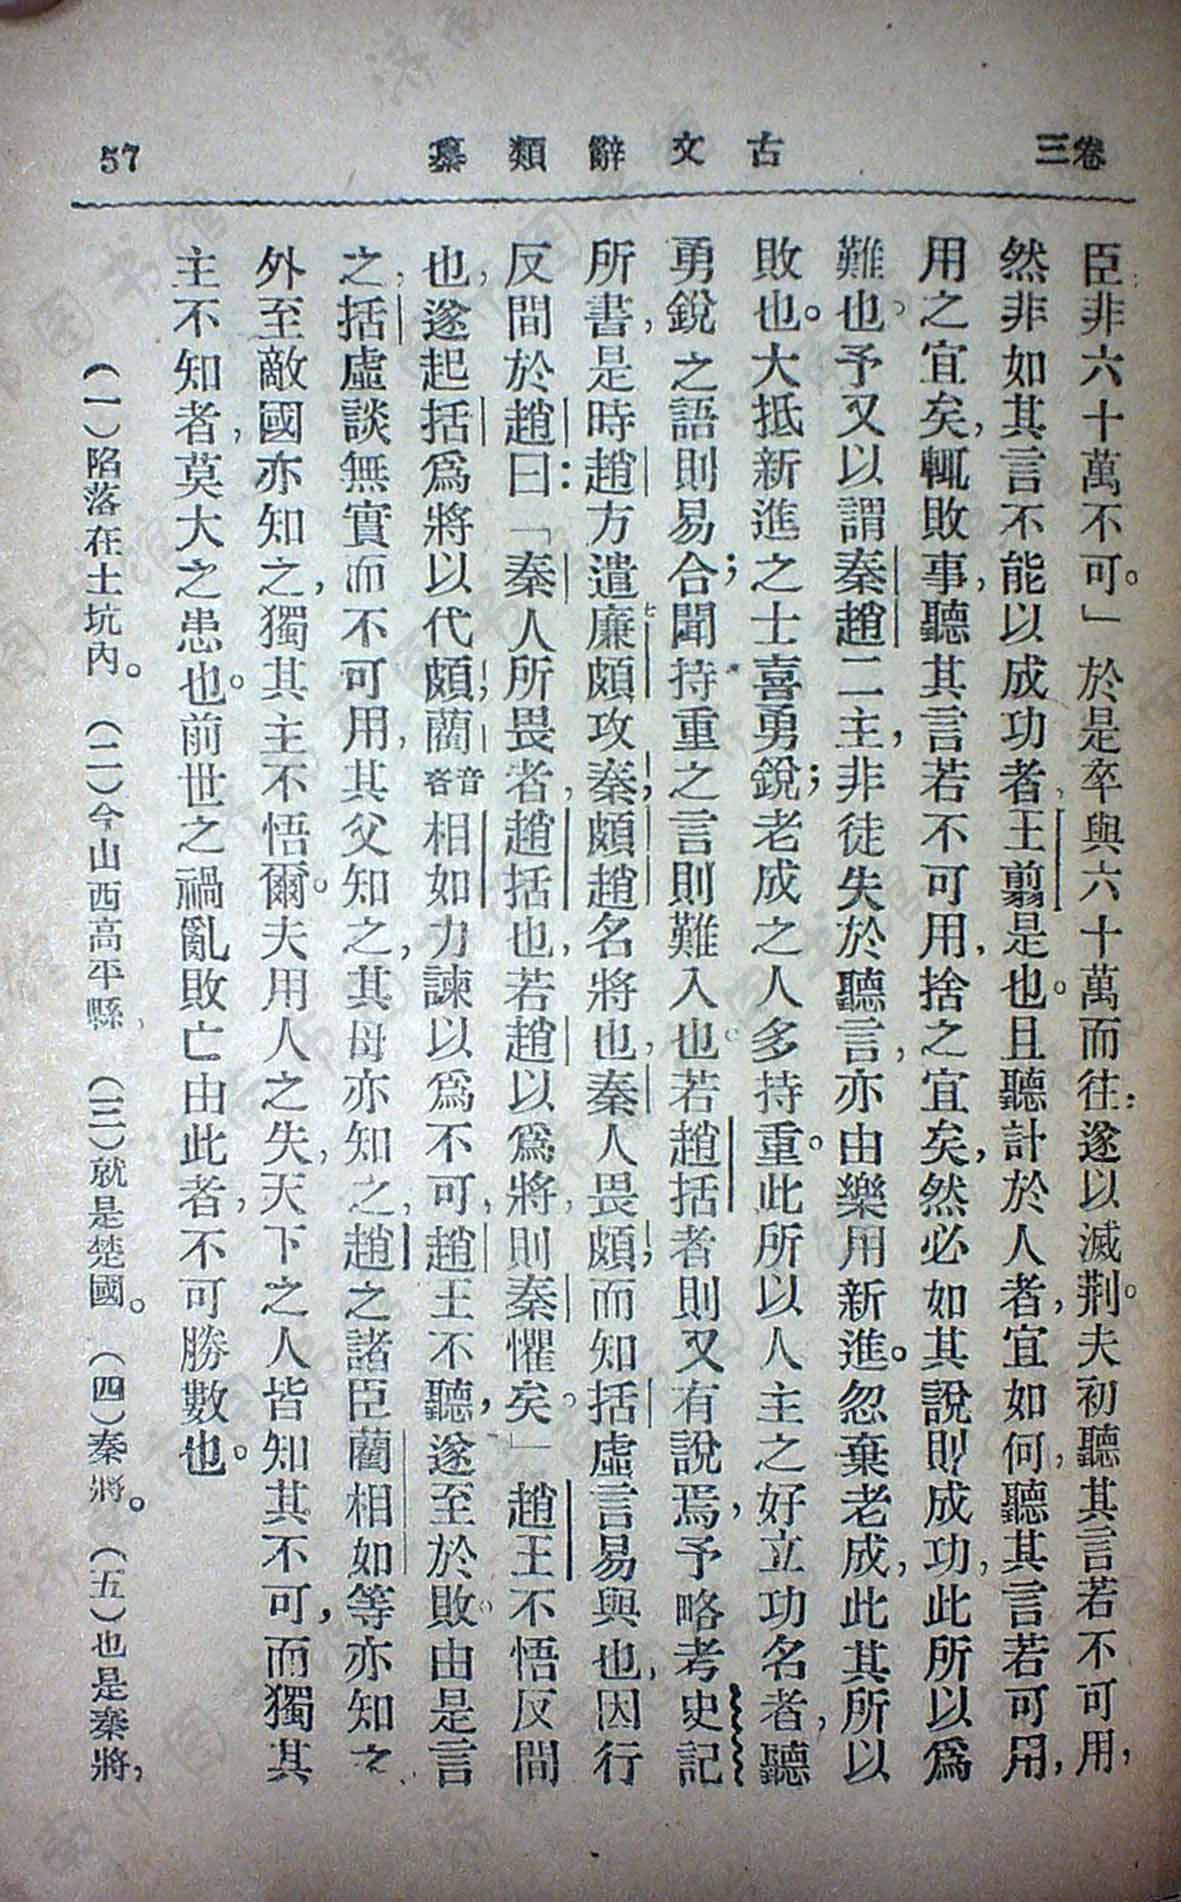 卷三
古文辭類纂
57
臣非六十萬不可。」於是卒與六十萬而往；遂以滅荆。夫初聽其言若不可用，
然非如其言不能以成功者，王翦是也。且聽計於人者，宜如何，聽其言若可用，
用之宜矣，輒敗事，聽其言若不可用，捨之宜矣，然必如其說則成功，此所以爲
難也。予又以謂秦趙二主，非徒失於聽言，亦由樂用新進。忽棄老成，此其所以
敗也。大抵新進之士喜勇銳；老成之人多持重。此所以人主之好立功名者，聽
勇銳之語則易合；聞持重之言則難入也。若趙括者則又有說焉，予略考史記
所書，是時趙方遣廉頗攻秦；頗趙名將也，秦人畏頗；而知括虛言易與也，因行
反間於趙曰：「秦人所畏者，趙括也，若趙以爲將，則秦懼矣。」趙王不悟反間
也，遂起括爲將以代頗；藺音吝相如力諫以爲不可，趙王不聽，遂至於敗。由是言
之，括虛談無實而不可用，其父知之，其母亦知之，趙之諸臣藺相如等亦知之、
外至敵國亦知之，獨其主不悟爾。夫用人之失，天下之人皆知其不可，而獨其
主不知者，莫大之患也。前世之禍亂敗亡由此者，不可勝數也。
（一）陷落在土坑內。（二）今山西高平縣，（三）就是楚國。（四）秦將。（五）也是秦將，